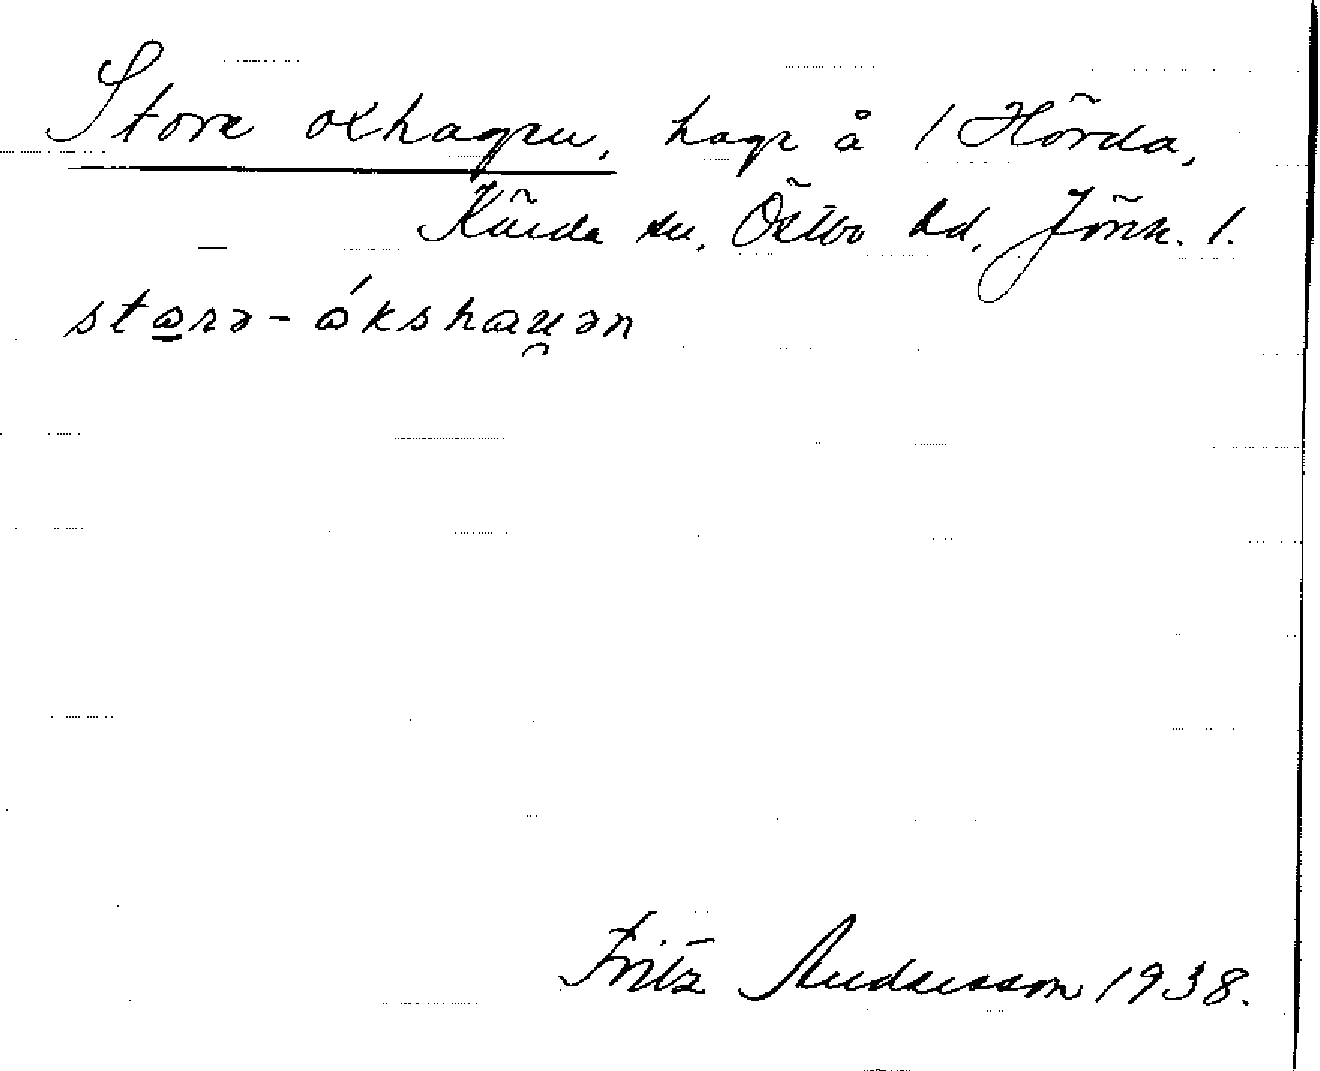 Store oxhagen, hage å 1 Hörda,
Kärda sn, Östbo hd, Jönk. l.
starə-ákshau̯ən
Fritz Andersson 1938.